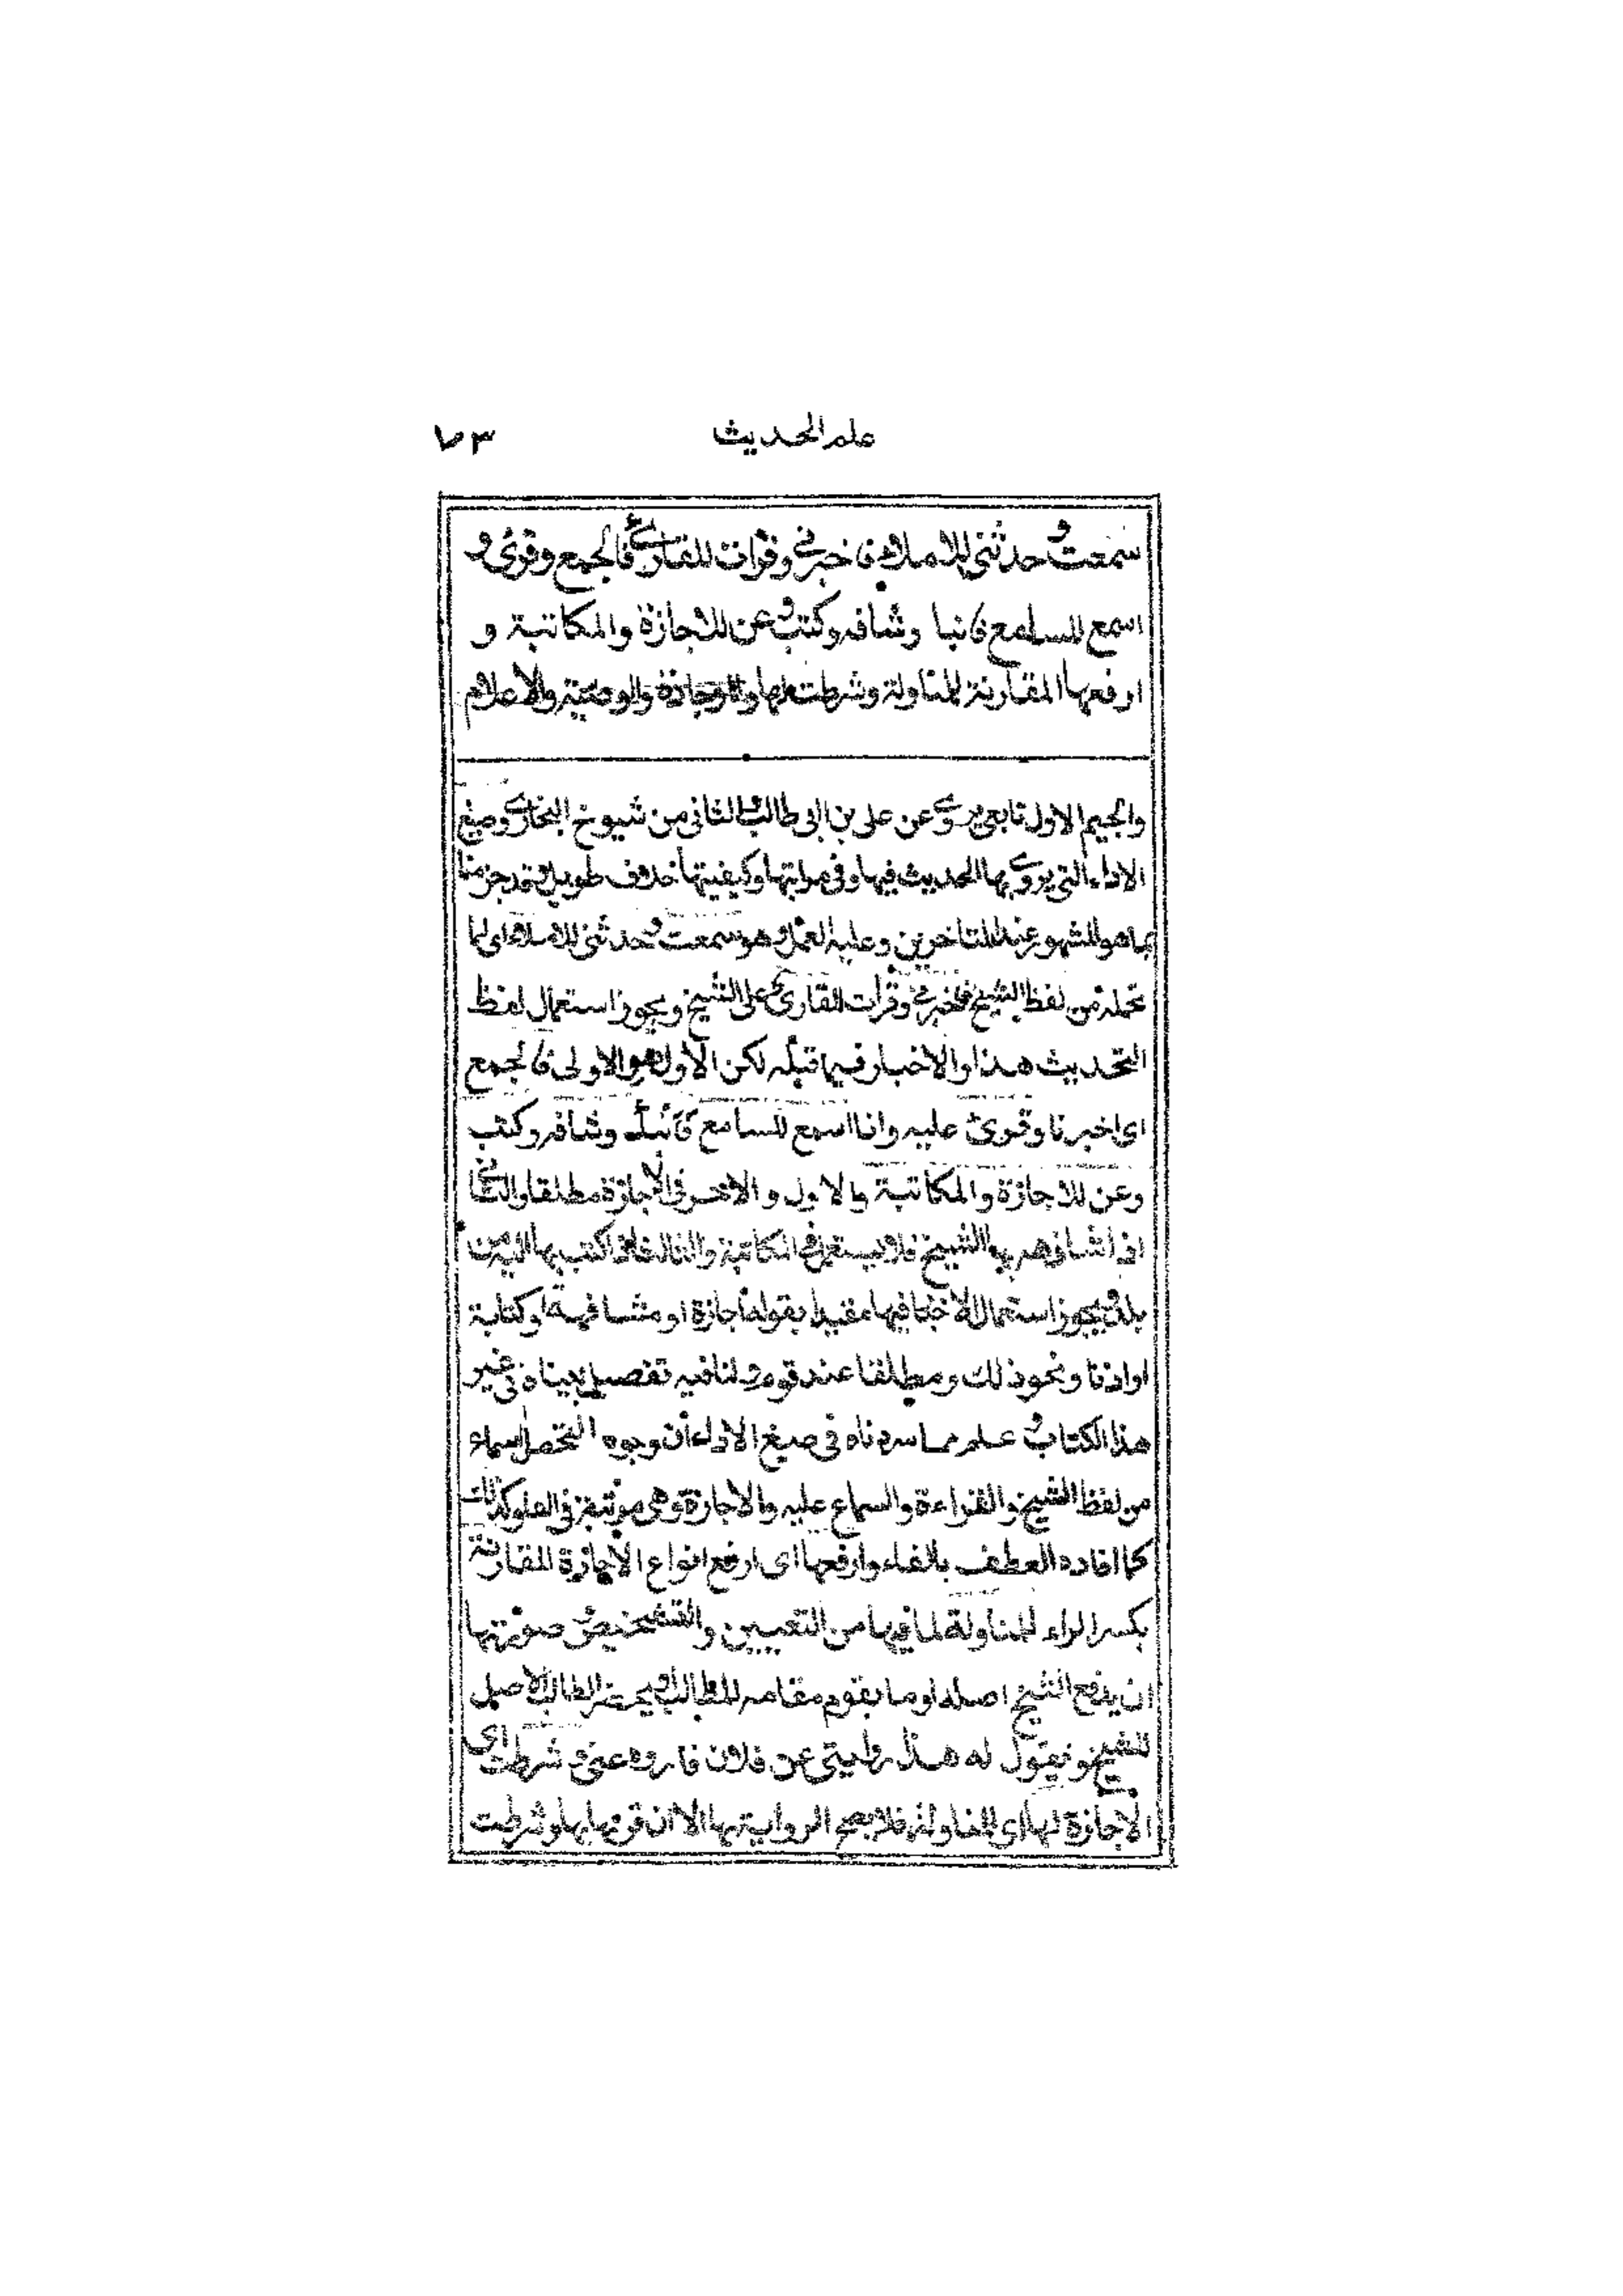 علم الحديث ٧٣
سمعت وحدثني للاملاء فاخبرني وقرات للقارئ فالجمع وقرئ و
اسمع للسامع فانبا وشافه وكتب وعن للاجازة والمكاتبة و
ارفعها المقارنة للمناولة وشرطت لها وللوجادة والوصية والاعلام
والجيم الاول تابعي يروي عن علي بن ابي طالب والثاني من شيوخ البخاري وصيغ
الاداء التي يروي بها الحديث فيها وفي مراتبها وكيفيتها خلاف طويل وقد جزمنا
بما هو المشهور عند المتاخرين وعليه العمل وهو سمعت وحدثني للاملاء اي لما
تحمله من لفظ الشيخ فاخبرني وقرات للقارئ على الشيخ ويجوز استعمال لفظ
التحديث هذا والاخبار فيما قبله لكن الاول هو الاولى فالجمع
اي اخبرنا وقرئ عليه وانا اسمع للسامع فانبأ وشافه وكتب
وعن للاجازة والمكاتبة والاول والاخر في الاجازة مطلقا والثاني
اذا شافهه بها الشيخ فلا يستعمل في المكاتبة والثالث اذا كتب بها اليه من
بلد ويجوز استعمال الاخبار فيها مقيدا بقوله اجازة او مشافهة او كتابة
او اذنا ونحو ذلك ومطلقا عند قوم ولنا فيه تفصيل بيناه في غير
هذا الكتاب وعلم مما سردناه في صيغ الاداء ان وجوه التحمل السماع
من لفظ الشيخ والقراءة والسماع عليه والاجازة وهي مرتبة في العلو كذلك
كما افاده العطف بالفاء وارفعها اي ارفع انواع الاجازة المقارنة
بكسر الراء للمناولة لما فيها من التعيين والتشخيص وصورتها
ان يدفع الشيخ اصله او ما يقوم مقامه للطالب او يحضر الطالب الاصل
للشيخ ويقول له هذا روايتي عن فلان فاروه عني وشرطت اي
الاجازة لها اي للمناولة فلا يصح الرواية بها الا ان قرنها بها وشرطت